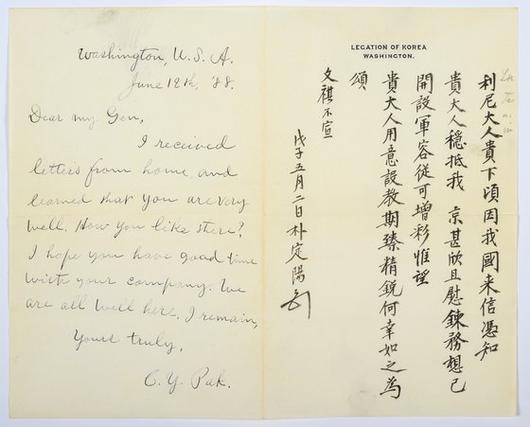 Washington, U.S.A.
June 12th, '88.
Dear my Gen,
I received
letters from home and
learned that you are very
well. How you like there?
I hope you have good time
with your company. We
are all well here. I remain,
Yours truly,
C. Y. Pak.
LEGATION OF KOREA
WASHINGTON.
利尼大人貴下頃因我國来信憑知
貴大人穩抵我 京甚欣且慰鍊務想已
開設軍容從可增彩惟望
貴大人用意設教期臻精銳何幸如之為
頌
文祺不宣
戊子五月二日朴定陽